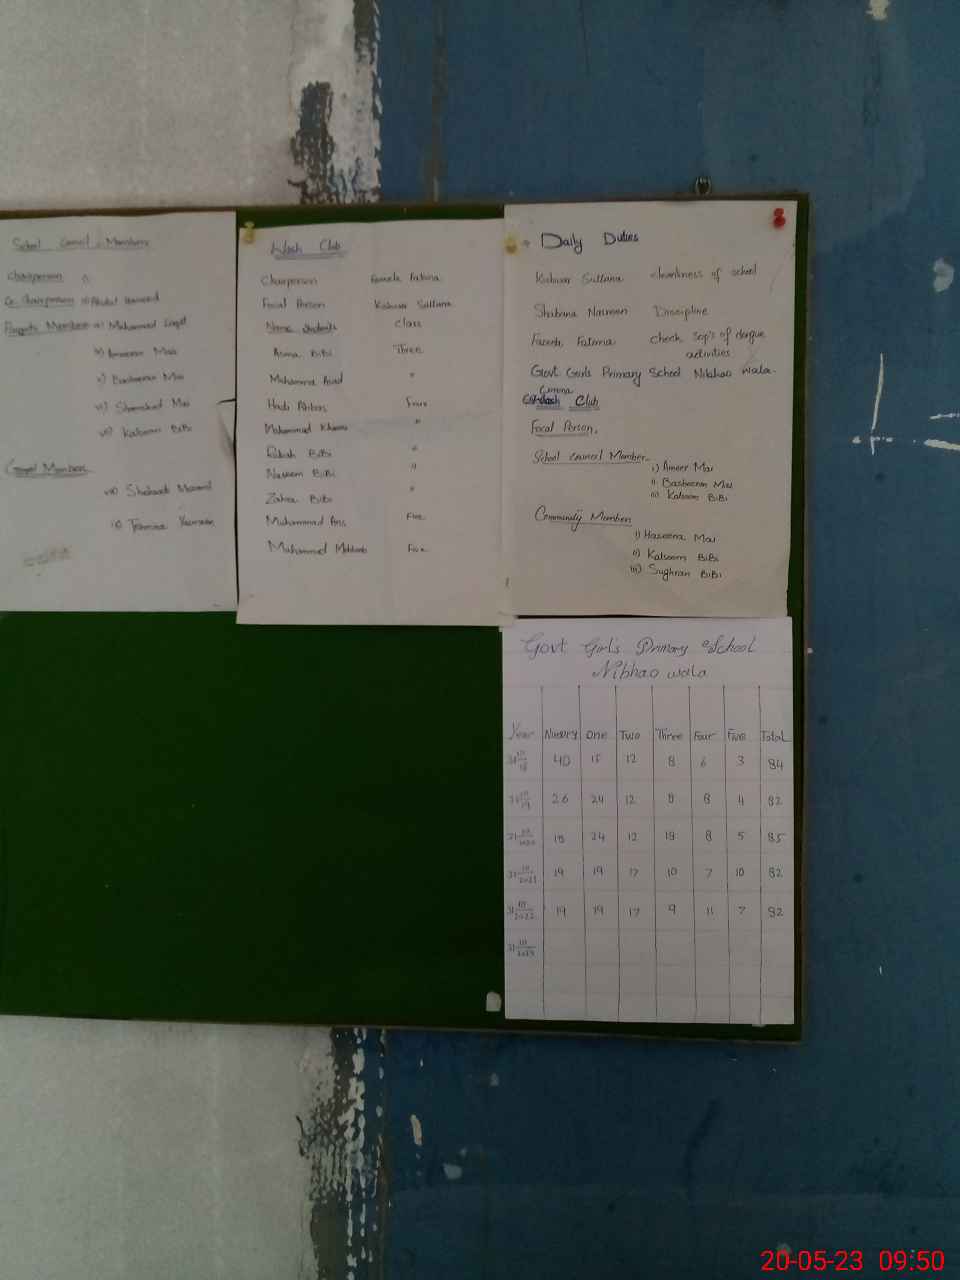 School Council Members
Chairperson
Co Chairperson ii) Abdul Hameed
Parents Members iii) Muhammad Sajid
iv) Ameeran Mai
v) Basheeran Mai
vi) Shamshad Mai
vii) Kalsoom BiBi
General Members
viii) Shahzadi
ix) Tahmina Yasmeen
Wash Club
Chairperson Fareeda Fatima
Focal Person Kishwar Sultana
Name students Class
Asma BiBi Three
Muhammad Asad "
Hadi Abbas Four
Muhammad "
BiBi "
Naseem BiBi "
Zahra BiBi "
Muhammad Anas Five
Muhammad Five
Daily Duties
Kishwar Sultana cleanliness of school
Shabana Nasreen Discipline
Fareeda Fatima check Sop's of dengue
activities
Govt Girls Primary School Nibhao wala
Corona
Club
Focal Person.
School council Member
i) Ameer Mai
ii Basheeran Mai
iii Kalsoom BiBi
Community Member
i) Haseena Mai
ii) Kalsoom BiBi
iii) Sughran BiBi
Govt Girl's Primary School
Nibhao wala
Year Nursry One Two Three Four Five Total
31 10/18 40 15 12 8 6 3 84
31 10/19 26 24 12 8 8 4 82
31 10/2020 18 24 12 18 8 5 85
31 10/2021 19 19 17 10 7 10 82
31 10/2022 19 19 17 9 11 7 82
31 10/2023
20-05-23 09:50